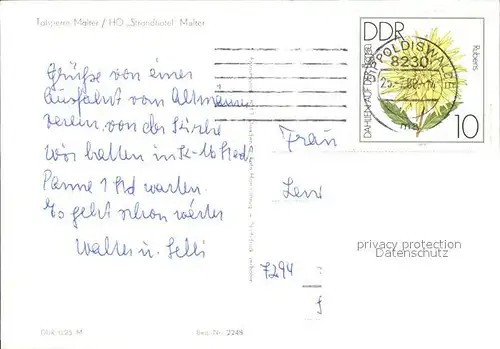 Talsperre Malter / HO „Strandhotel" Malter
Grüße von einer
Ausfahrt vom Altmänner
verein von der Kirche
wir hatten in K-M Stadt
Panne 1 Std warten.
Es geht schon weiter
Walter u.
Frau
7294
DDR
DAHLIEN AUF DER
Rubens
10
DIPPOLDISWALDE
8230
privacy protection
Datenschutz
0,25 M
Best.-Nr. 2248